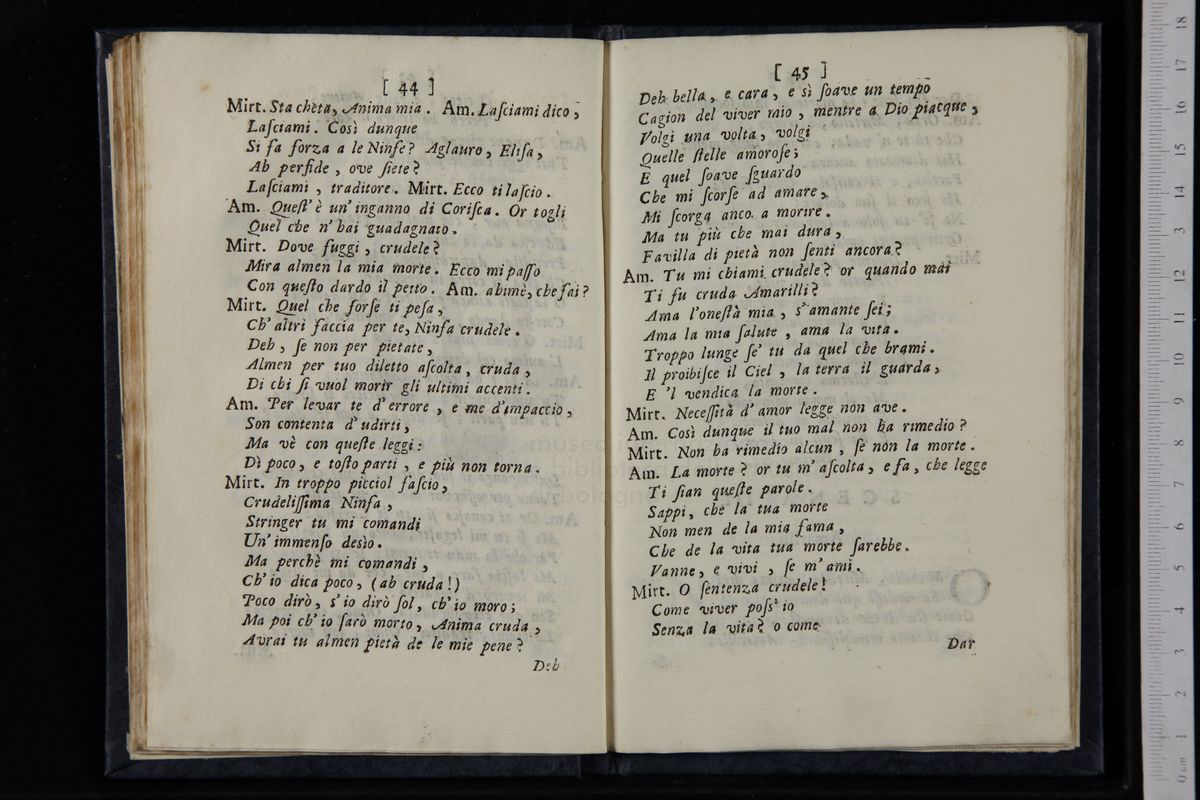 [ 44 ]
Mirt. Sta cheta, Anima mia. Am. Laſciami dico,
Laſciami. Così dunque
Si fa forza a le Ninfe? Aglauro, Eliſa,
Ah perfide, ove ſiete?
Laſciami, traditore. Mirt. Ecco ti laſcio.
Am. Queſt' è un' inganno di Coriſca. Or togli
Quel che n' hai guadagnato.
Mirt. Dove fuggi, crudele?
Mira almen la mia morte. Ecco mi paſſo
Con queſto dardo il petto. Am. ahimè, che fai?
Mirt. Quel che forſe ti peſa,
Ch' altri faccia per te, Ninfa crudele.
Deh, ſe non per pietate,
Almen per tuo diletto aſcolta, cruda,
Di chi ſi vuol morir gli ultimi accenti.
Am. Per levar te d' errore, e me d'impaccio,
Son contenta d' udirti,
Ma vè con queſte leggi:
Dì poco, e toſto parti, e più non torna.
Mirt. In troppo picciol faſcio,
Crudeliſſima Ninfa,
Stringer tu mi comandi
Un' immenſo desìo.
Ma perchè mi comandi,
Ch' io dica poco, (ah cruda!)
Poco dirò, s' io dirò ſol, ch' io moro;
Ma poi ch' io ſarò morto, Anima cruda,
Avrai tu almen pietà de le mie pene?
Deh
[ 45 ]
Deh bella, e cara, e sì ſoave un tempo
Cagion del viver mio, mentre a Dio piacque,
Volgi una volta, volgi
Quelle ſtelle amoroſe;
E quel ſoave ſguardo
Che mi ſcorſe ad amare,
Mi ſcorga anco a morire.
Ma tu più che mai dura,
Favilla di pietà non ſenti ancora?
Am. Tu mi chiami crudele? or quando mai
Ti fu cruda Amarilli?
Ama l'oneſtà mia, s' amante ſei;
Ama la mia ſalute, ama la vita.
Troppo lunge ſe' tu da quel che brami.
Il proibiſce il Ciel, la terra il guarda,
E 'l vendica la morte.
Mirt. Neceſſità d' amor legge non ave.
Am. Così dunque il tuo mal non ha rimedio?
Mirt. Non ha rimedio alcun, ſe non la morte.
Am. La morte? or tu m' aſcolta, e fa, che legge
Ti ſian queſte parole.
Sappi, che la tua morte
Non men de la mia fama,
Che de la vita tua morte ſarebbe.
Vanne, e vivi, ſe m' ami.
Mirt. O ſentenza crudele!
Come viver poſs' io
Senza la vita? o come
Dar